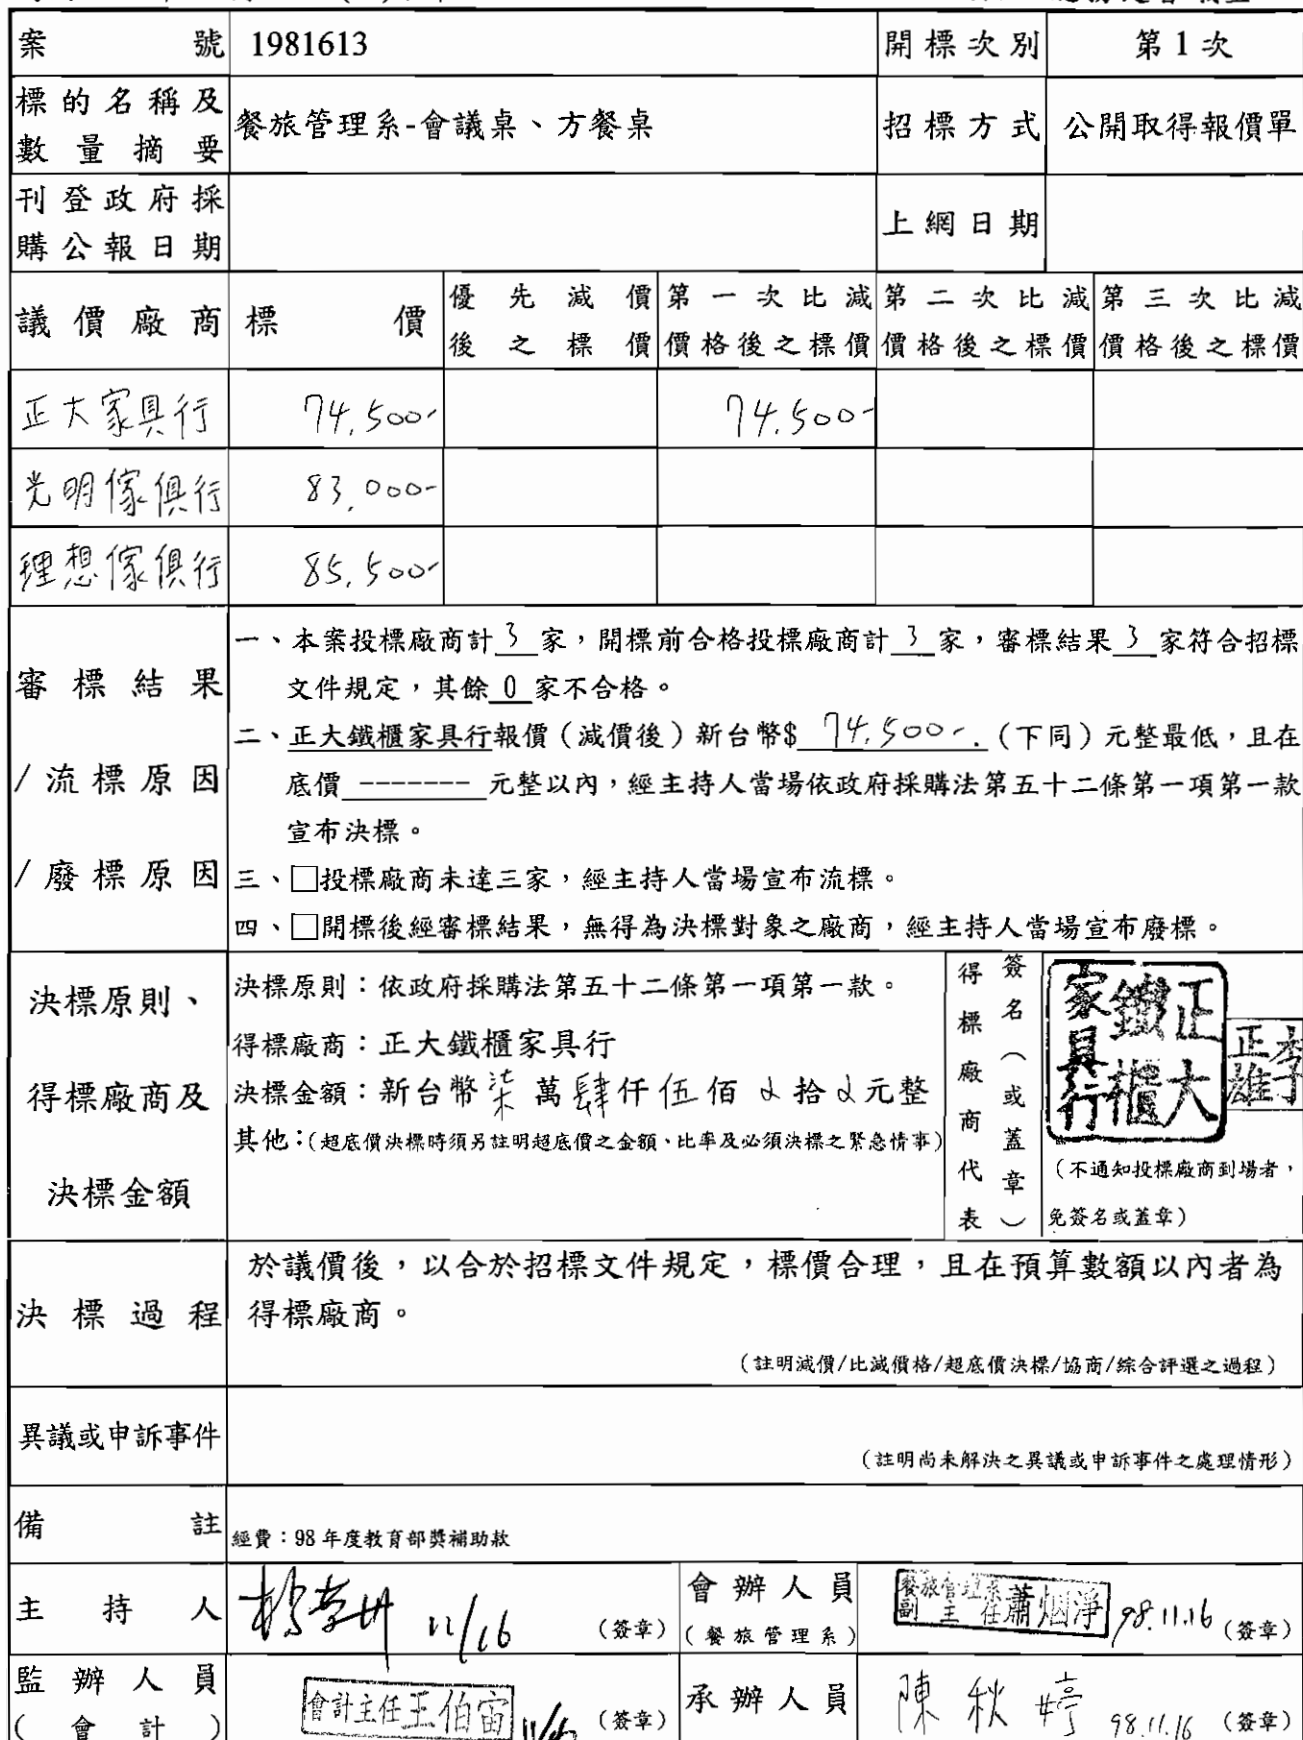 案號 1981613 開標次別 第1次
標的名稱及數量摘要 餐旅管理系-會議桌、方餐桌 招標方式 公開取得報價單
刊登政府採購公報日期 上網日期
議價廠商 標價 優先減價後之標價 第一次比減價格後之標價 第二次比減價格後之標價 第三次比減價格後之標價
正大家具行 74,500- 74,500-
光明傢俱行 83,000-
理想傢俱行 85,500-
審標結果
/流標原因
/廢標原因
一、本案投標廠商計 3 家，開標前合格投標廠商計 3 家，審標結果 3 家符合招標
文件規定，其餘 0 家不合格。
二、正大鐵櫃家具行報價（減價後）新台幣$ 74,500-.（下同）元整最低，且在
底價 ------- 元整以內，經主持人當場依政府採購法第五十二條第一項第一款
宣布決標。
三、□投標廠商未達三家，經主持人當場宣布流標。
四、□開標後經審標結果，無得為決標對象之廠商，經主持人當場宣布廢標。
決標原則、
得標廠商及
決標金額
決標原則：依政府採購法第五十二條第一項第一款。
得標廠商：正大鐵櫃家具行
決標金額：新台幣柒萬肆仟伍佰 拾 元整
其他：(超底價決標時須另註明超底價之金額、比率及必須決標之緊急情事)
得標廠商代表
簽名（或蓋章）
正大
鐵櫃
家具行
李
正雄
（不通知投標廠商到場者，
免簽名或蓋章）
決標過程
於議價後，以合於招標文件規定，標價合理，且在預算數額以內者為
得標廠商。
（註明減價/比減價格/超底價決標/協商/綜合評選之過程）
異議或申訴事件
（註明尚未解決之異議或申訴事件之處理情形）
備註 經費：98 年度教育部獎補助款
主持人 11/16 （簽章）
會辦人員
（餐旅管理系）
餐旅管理系
副主任 蕭烟淨 98.11.16 （簽章）
監辦人員
(會計)
會計主任王伯宙 （簽章）
承辦人員 陳秋婷 98.11.16 （簽章）